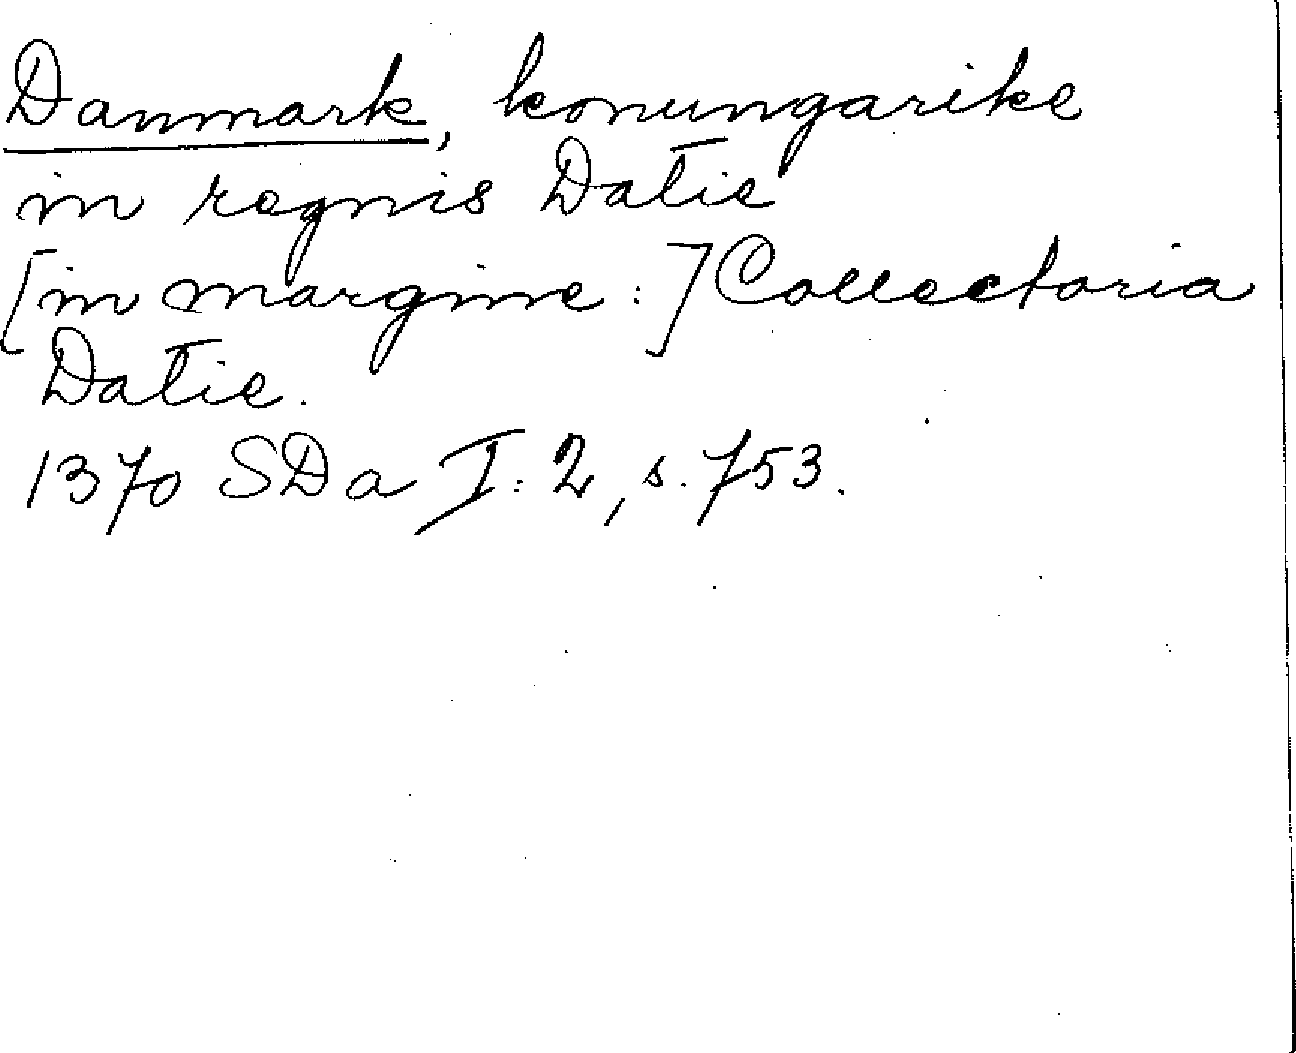 Danmark, konungarike
in regnis Datie
[in margine:] Collectoria
Datie.
1370 SDa I:2, s. 753.